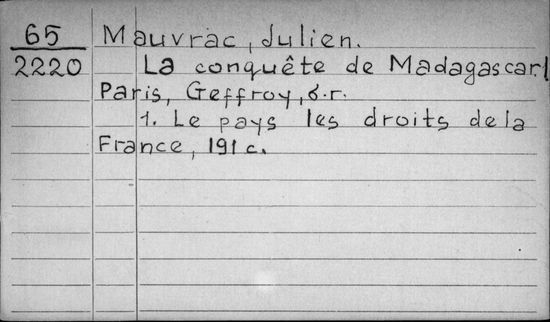 65 Mauvrac, Julien.
2220 La conquête de Madagascar
Paris, Geffroy, s.r.
1. Le pays les droits de la
France, 191 c.